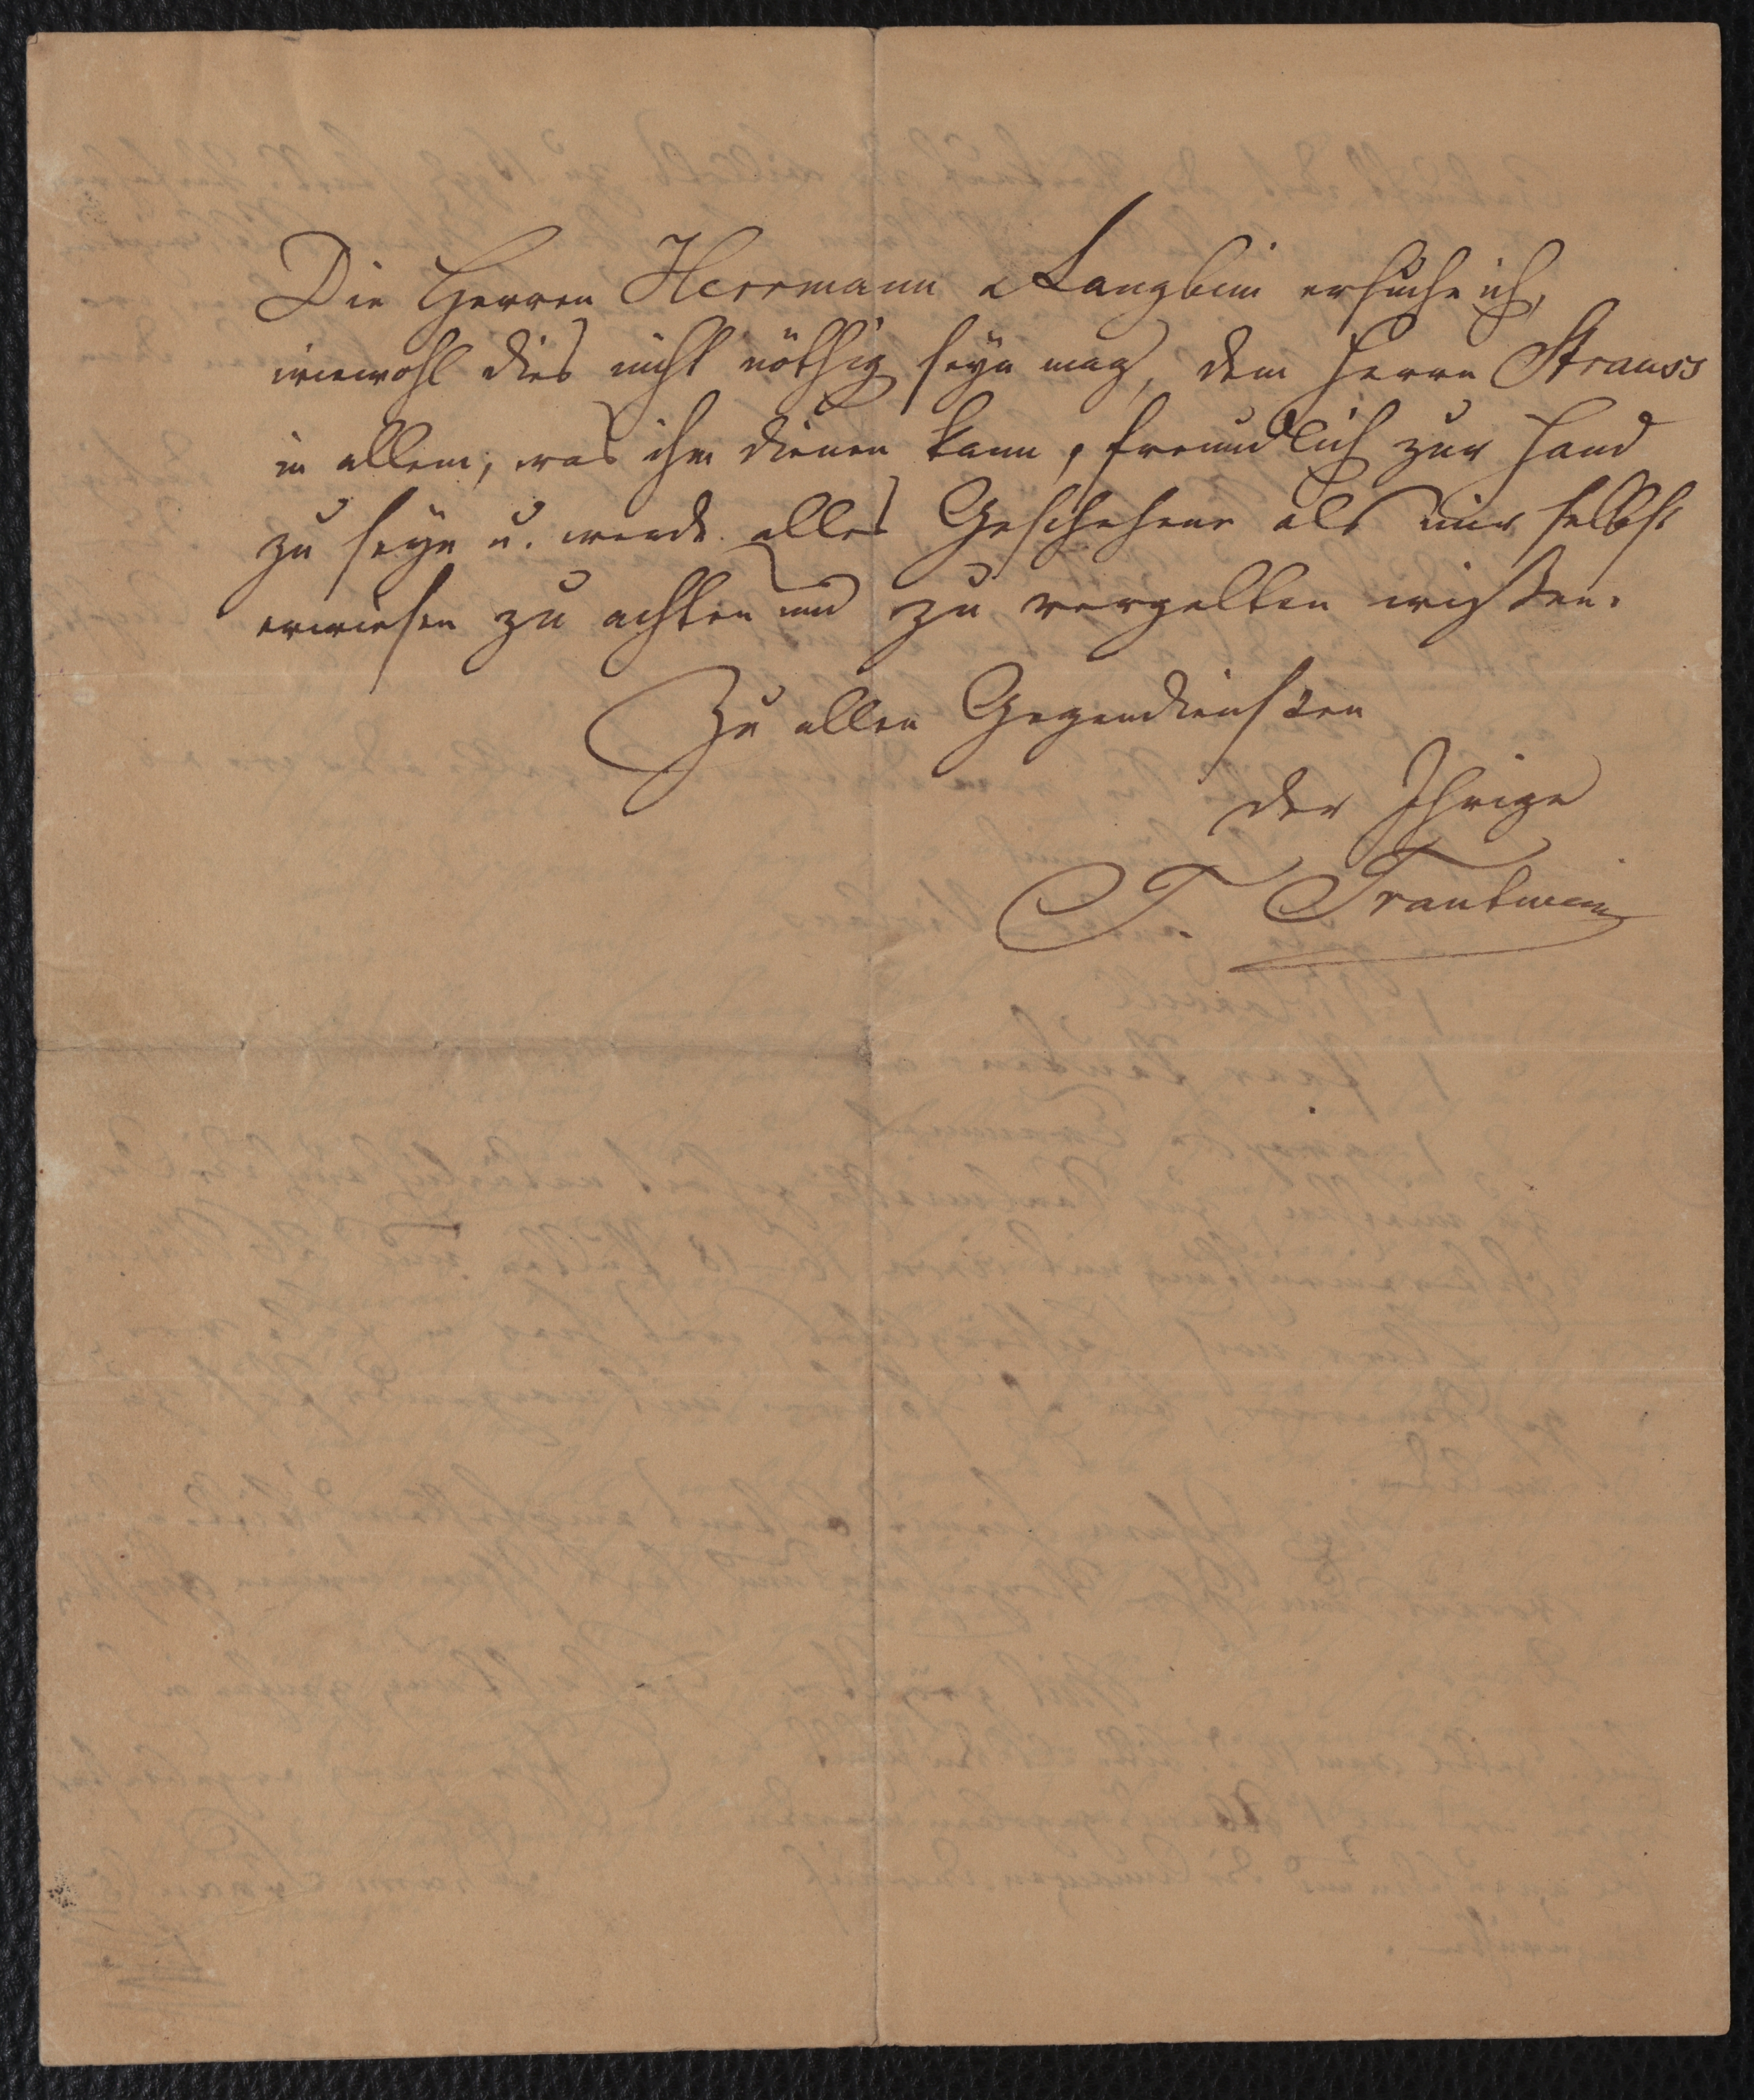 Die Herren Herrmann & Langbein ersuche ich,
wiewohl dies nicht nöthig seyn mag, dem Herrn Strauss
in allem, was ihm dienen kann, freundlich zur Hand
zu seyn u. werde alles Geschehene als mir selbst
erwiesen zu achten und zu vergelten wißen.
Zu allen Gegendiensten
der Ihrige
T. Trautwein